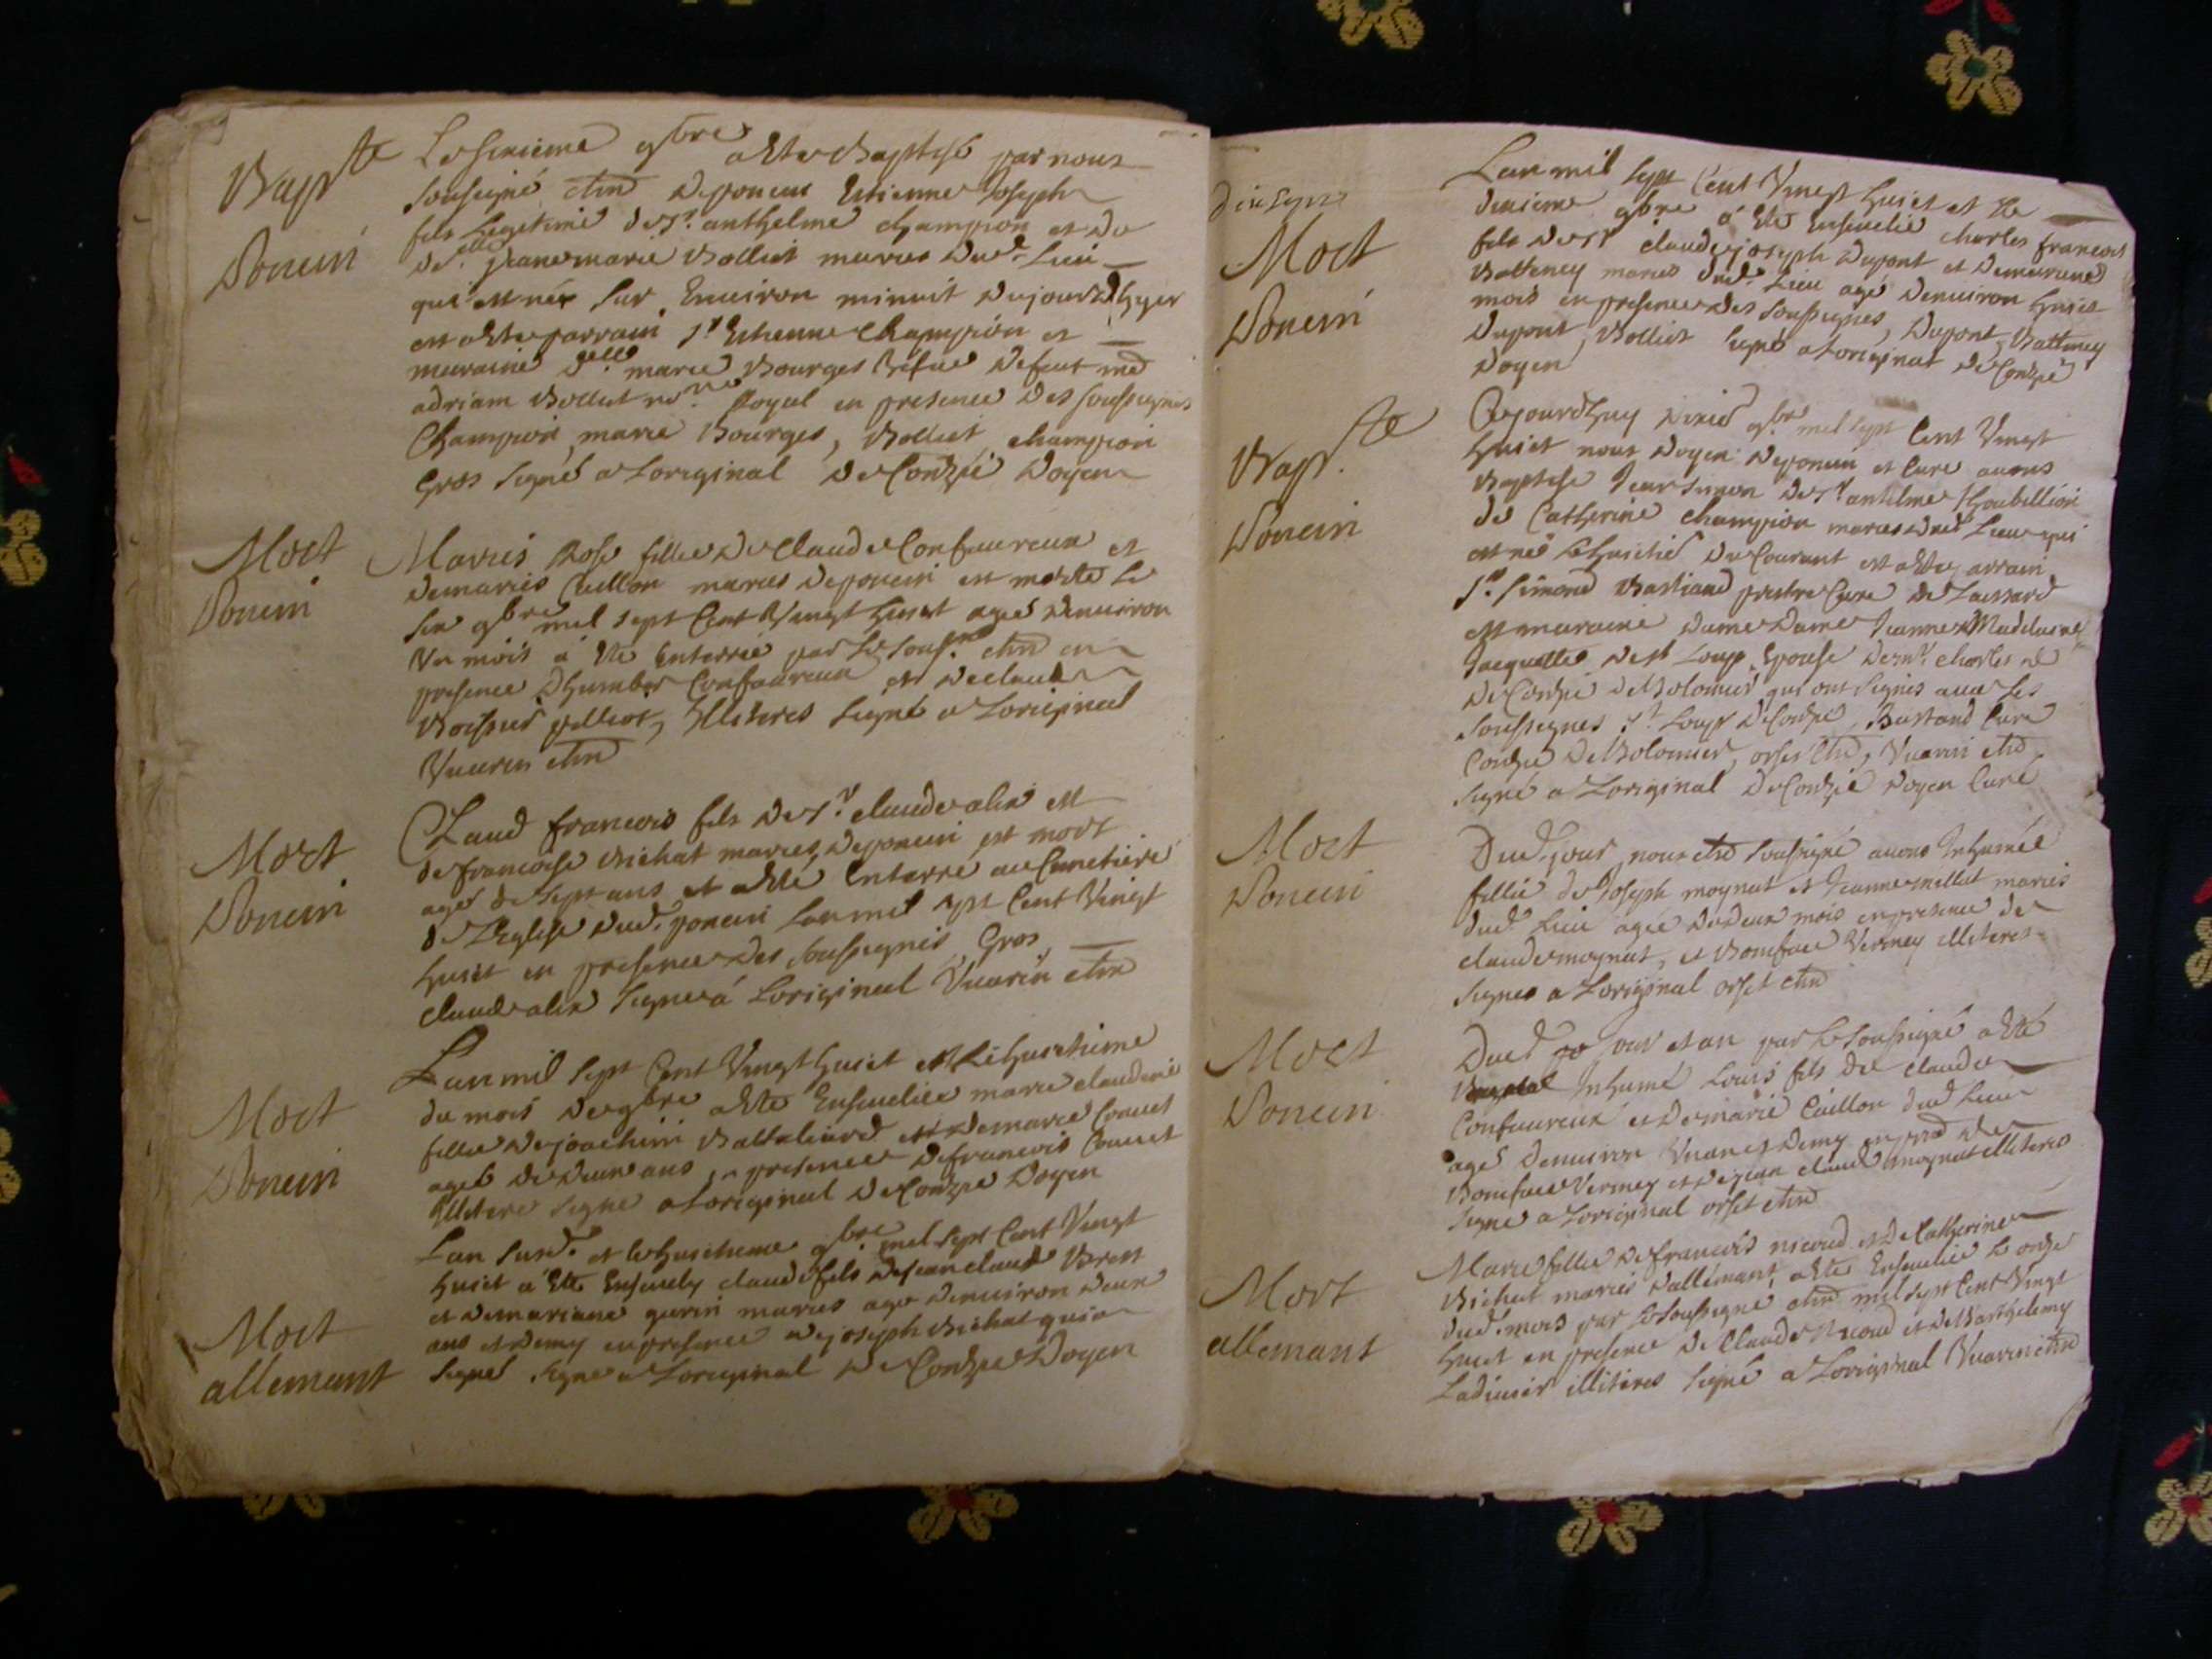 Bapte
Poncin
Le sixieme 9bre a Este Baptisé par nous
soussigné chne De poncin Estienne Joseph
fils Legitime de Sr. anthelme champion et De
Delle. jeanne marie Bolliet maries Dud. Lieu
qui est né sur Environ minuit Du jour Dhyer
et a Este parrain Sr Estienne Champion et
maraine Delle marie Bourges Vefue De feut me
adriam Bolliet nore Royal en presence Des soussignes
Champion, marie Bourges, Bolliet, champion
Gros signé a Loriginal De Conzié Doyen
Mort
Poncin
Marie Rose fillie De Claude Confaureux et
De marie Caillon maries De poncin est morte Le
six 9bre mil sept Cent Vingt huict agée Denuiron
Vn mois a Ete Enterrée par Le soussné chne en
presence Dhumber Confaureux et De claude
pelliot, Illiteres signé a Loriginal
Vuarin chne
Mort
Poncin
Claud francois fils De Sr. claude alix et
de francoise Bichat maries De poncin est mort
agé de sept ans et a Esté Enterré au Cimetiere
de Leglise Dud. poncin Lan mil sept Cent Vingt
huict en presence Des soussignés, Gros,
claude alix signe á Loriginal Vuarin chne
Mort
Poncin
Lan mil sept Cent Vingt huict et Le huictieme
du mois De 9bre a Este Enseuelie marie claudine
fillie De joachim Battaliard et De marie Couuet
agée De Deux ans en presence De francois Couuet
Illitere signe a Loriginal De Conzié Doyen
Mort
allemant
Lan susd. et Le huictieme 9bre mil sept Cent Vingt
huict a Ete Enseuely claude fils De jean claude Bret
et De mariane guerin maries agé Denuiron Deux
ans et Demy en presence De joseph Bichat qui a
signé signe a Loriginal De Conzié Doyen
Mort
Poncin
Lan mil sept Cent Vingt huict et Le
dixieme 9bre a Ete Enseuelie charles francois
fils De Sr claude joseph Dupont et De mariane
Batteney maries Dud. Lieu agé Denuiron huict
mois en presence Des soussignes, Dupont, Batteney
Dupont, Bolliet signé a Loriginal De Conzié
Doyen
Bapte
Poncin
Aujourdhuy dixie 9bre mil sept Cent Vingt
huict nous Doyen De poncin et Curé auons
Baptisé Jean simon De Sr antelme
de Catherine Champion maries Dud Lieu qui
est né Le huictie Du Courant et a Esté parrain
Sr. simond Bastiand prestre Curé De
et maraine Dame Dame Jeanne Madelaine
Jacqueline De St Loup Epouse De mr. charles
De Conzié De Bolomier qui ont signés auec Les
soussignes St. Loup De Conzié, Bastiand Curé
Conzié De Bolomier, orset chne, Vuarin chne
signé a Loriginal De Conzié Doyen Curé
Mort
Poncin
Dud. jour nous chne soussigné auons Inhumée
fillie de Joseph moynat et Jeanne millet maries
dud. Lieu agée De deux mois en presence de
claude moynat, et Boniface Vermey illiteres
signes a Loriginal orset chne
Mort
Poncin
Dud jour et an par Le soussigné a Esté
Inhumé Louis fils De claude
Confaureux et De marie Caillon dud Lieu
agé Denuiron Vn an et Demy en pnce De
Boniface Vermey et De jean claude moynat illiteres
signe a Loriginal orset chne
Mort
allemant
Marie fillie De francois nicoud et De Catherine
Bichat maries Dallemant, a Ete Enseuelie Le onze
dud. mois par Le soussigné chne mil sept Cent Vingt
huict en presence De Claude nicoud et De Barthelemy
Ladeusir illiteres signé a Loriginal Vuarin chne